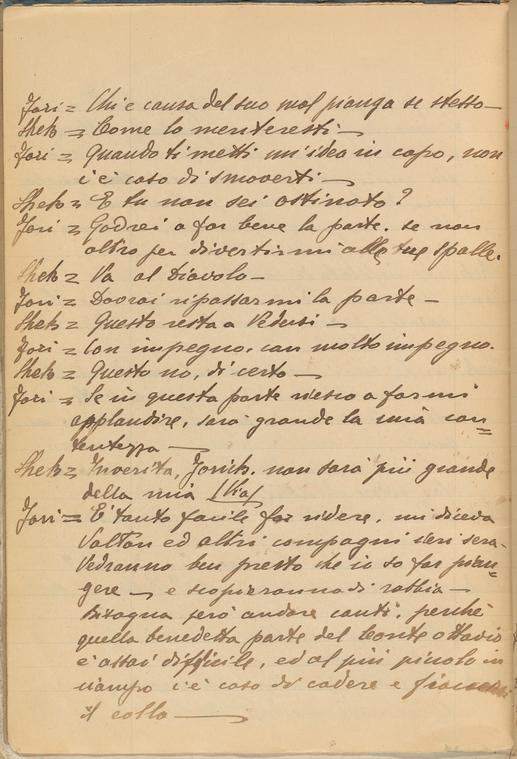 Jori = Chi è causa del suo mal pianga se stesso —
Shek = Come lo meriteresti —
Jori = Quando ti metti un'idea in capo, non
c'è caso di smoverti —
Shek = E tu non sei ostinato?
Jori = Godrei a far bene la parte. se non
altro per divertirmi alle tue spalle.
Shek = Va al Diavolo —
Jori = Dovrai ripassarmi la parte —
Shek = Questo resta a Vedersi —
Jori = Con impegno, con molto impegno.
Shek = Questo no, di certo —
Jori = Se in questa parte riesco a farmi
applaudire, sarà grande la mia con=
tentezza —
Shek = Inverità, Jorick. non sarà più grande
della mia (Via)
Jori = È tanto facile far ridere, mi diceva
Valton ed altri compagni ieri sera —
Vedranno ben presto che io so far pian=
gere — e scoppieranno di rabbia —
Bisogna però andare cauti, perchè
quella benedetta parte del Conte Ottavio
è assai difficile, ed al più piccolo in
ciampo c'è caso di cadere e fiaccarsi
il collo —